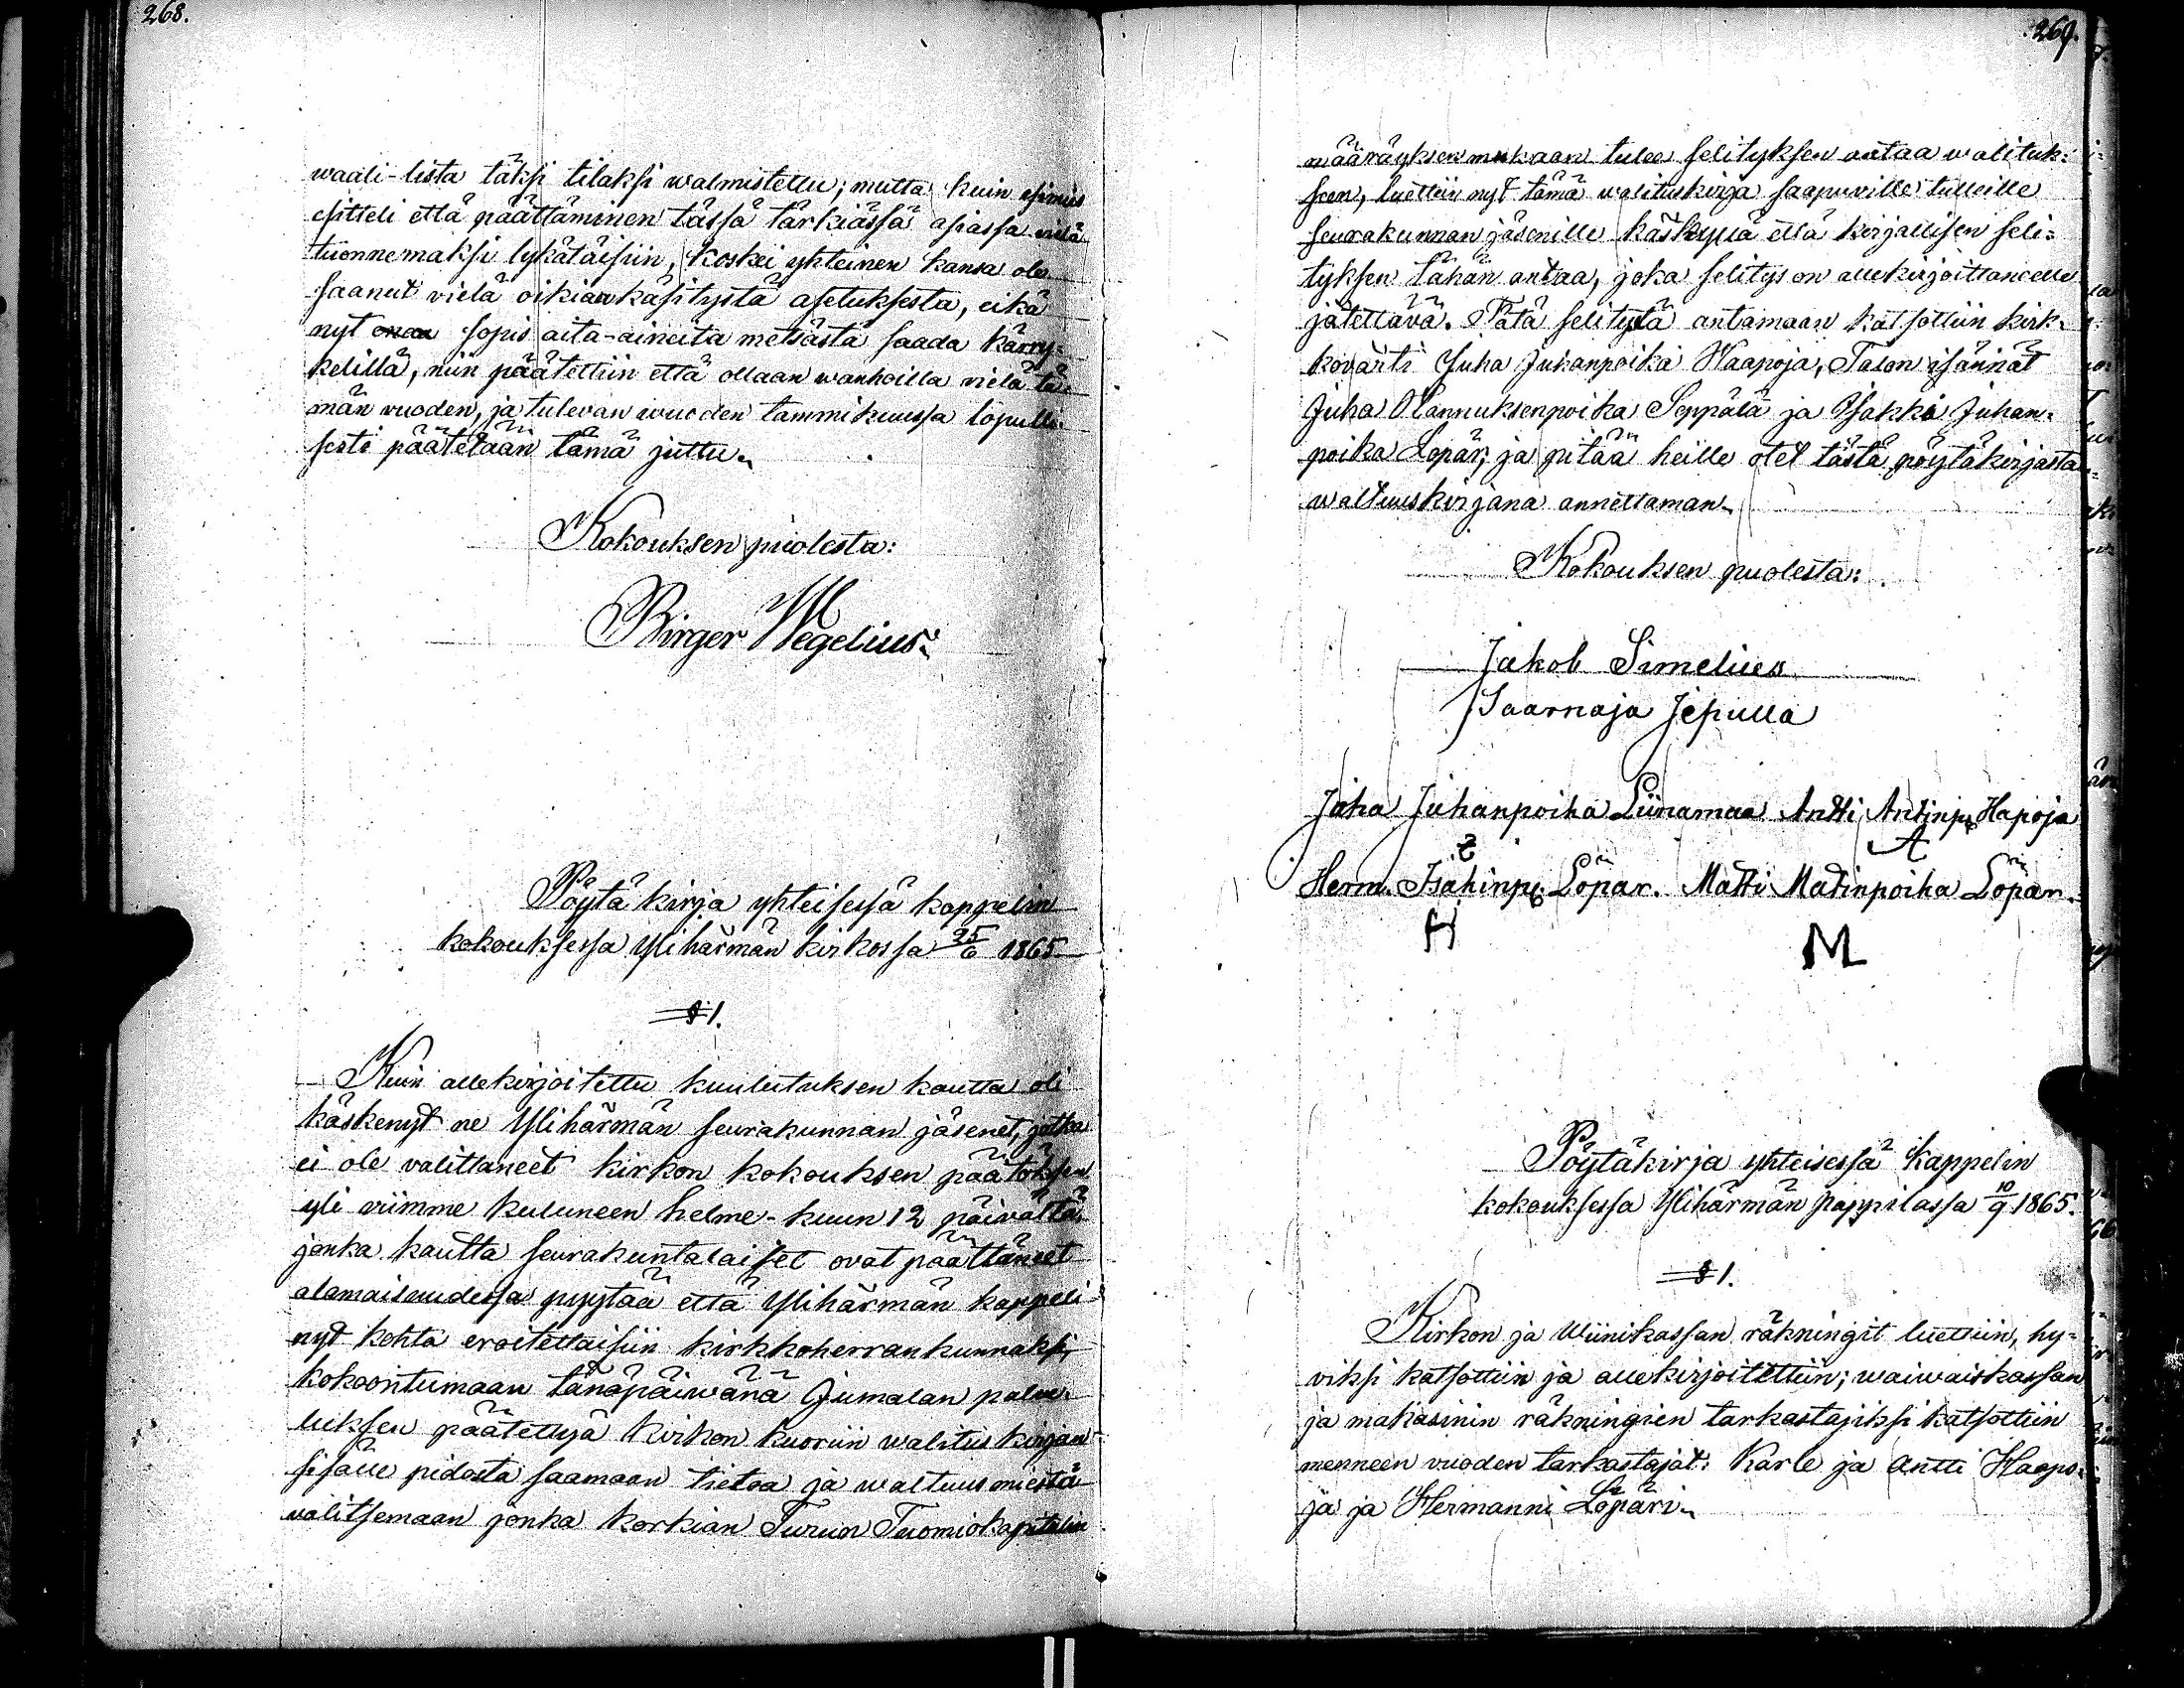 268.
waali-lista täksi tilaksi walmistettu; mutta kuin esimies
esitteli että päättäminen tässä tärkiässä asiassa vielä
tuonnemaksi lykätäisiin, koskei yhteinen kansa ole
saanut vielä oikian käsitystä asetuksesta, eikä
nyt enää sopis aita-aineita metsästä saada kärry-
kelillä, niin päätettiin että ollaan wanhoilla vielä tä-
män vuoden, ja tulevan vuoden tammikuussa lopulli-
sesti päätetään tämä juttu.
Kokouksen puolesta:
Birger Wegelius.
Pöytäkirja yhteisessä kappelin
kokouksessa Ylihärmän kirkossa 25/6 1865.
§ 1.
Kuin allekirjoitettu kuulutuksen kautta oli
käskenyt ne Ylihärmän seurakunnan jäsenet, jotka
ei ole valittaneet kirkon kokouksen päätöksen
yli viimme kuluneen helme-kuun 12 päivältä,
jonka kautta seurakuntalaiset ovat päättäneet
alamaisuudessa pyytää että Ylihärmän kappeli
nyt kohta eroitettaisiin kirkkoherrankunnaksi,
kokoontumaan tänäpäiwänä Jumalan palve-
luksen päätettyä kirkon kuoriin walitus kirjan
sisälle pidosta saamaan tietoa ja waltuusmiestä
valitsemaan jonka korkian Turun Tuomiokapitelin
269.
määräyksen mukaan tulee selityksen antaa walituk-
seen, luettiin nyt tämä walituskirja saapuville tulleille
seurakunnan jäsenille käskyllä että kirjallisen seli-
tyksen tähän antaa, joka selitys on allekirjoittaneelle
jätettävä. Tätä selitystä antamaan katsottiin kirk-
kovärti Juha Juhanpoika Haapoja, Talon isännät
Juha Hannuksenpoika Seppälä ja Isakki Juhan-
poika Löpär, ja pitää heille otet tästä pöytäkirjasta
waltuuskirjana annettaman.
Kokouksen puolesta:
Jakob Simelius
Saarnaja Jepulla
Juha Juhanpoika Liinamaa Antti Antinp. Hapoja
A
Herm. Isakinp. Löpär. Matti Matinpoika Löpär.
H M
Pöytäkirja yhteisessä Kappelin
kokouksessa Ylihärmän pappilassa 10/9 1865.
§ 1.
Kirkon ja Wiinikassan räkningit luettiin, hy-
viksi katsottiin ja allekirjoitettiin; waiwaiskassan
ja makasinin räkningien tarkastajiksi katsottiin
menneen vuoden tarkastajat: Karle ja Antti Haapo-
ja ja Hermanni Löpäri.